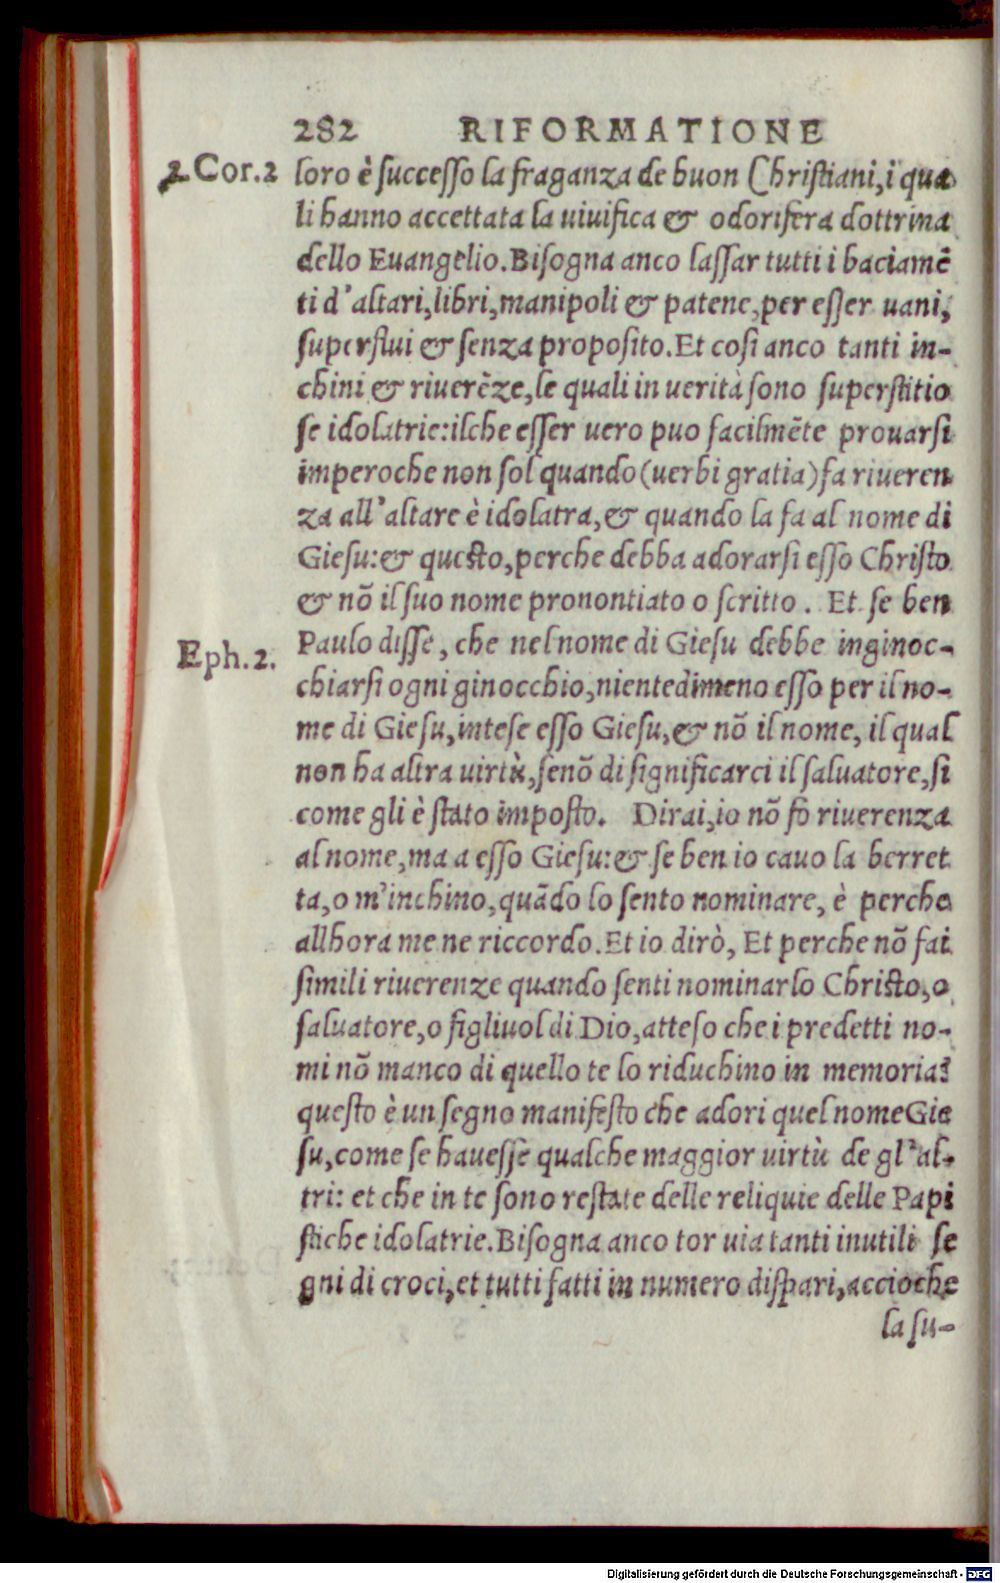 282 RIFORMATIONE
2. Cor. 2
loro è successo la fraganza de buon Christiani, i qua
li hanno accettata la uiuifica & odorifera dottrina
dello Euangelio. Bisogna anco lassar tutti i baciamē
ti d'altari, libri, manipoli & patene, per esser uani,
superflui & senza proposito. Et cosi anco tanti in-
chini & riuerēze, le quali in uerità sono superstitio
se idolatrie: ilche esser uero puo facilmēte prouarsi
imperoche non sol quando (uerbi gratia) fa riueren
za all'altare è idolatra, & quando la fa al nome di
Giesu: & questo, perche debba adorarsi esso Christo
& nō il suo nome pronontiato o scritto. Et se ben
Eph. 2.
Paulo disse, che nel nome di Giesu debbe inginoc-
chiarsi ogni ginocchio, nientedimeno esso per il no-
me di Giesu, intese esso Giesu, & nō il nome, il qual
non ha altra uirtù, senō di significarci il saluatore, si
come gli è stato imposto. Dirai, io nō fo riuerenza
al nome, ma a esso Giesu: & se ben io cauo la berret
ta, o m'inchino, quādo lo sento nominare, è perche
allhora me ne riccordo. Et io dirò, Et perche nō fai
simili riuerenze quando senti nominarlo Christo, o
saluatore, o figliuol di Dio, atteso che i predetti no-
mi nō manco di quello te lo riduchino in memoria?
questo è un segno manifesto che adori quel nome Gie
su, come se hauesse qualche maggior uirtù de gl'al-
tri: et che in te sono restate delle reliquie delle Papi
stiche idolatrie. Bisogna anco tor uia tanti inutili se
gni di croci, et tutti fatti in numero dispari, accioche
la su-
Digitalisierung gefördert durch die Deutsche Forschungsgemeinschaft - DFG